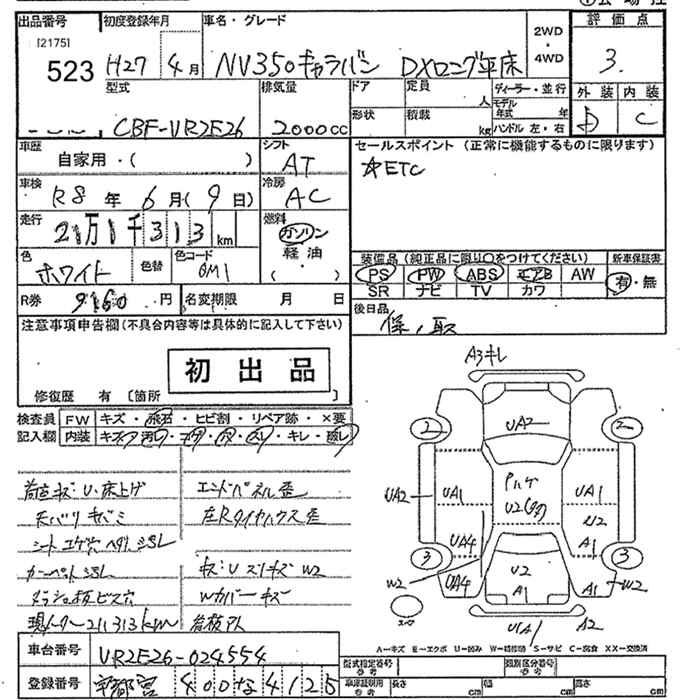 出品番号 初度登録年月 車名・グレード 評価点
[2175]
523 H27 4月 NV350キャラバン DXロング平床 2WD・4WD 3.
型式 排気量 ドア 定員 人 ディーラー・並行 外装 内装
CBF-VR2E26 2000cc 形状 積載 kg モデル年式 年 ハンドル 左・右 D C
車歴 シフト セールスポイント(正常に機能するものに限ります)
自家用・( ) AT ☆ETC
車検 冷房
R8年 6月(9日) AC
走行 燃料
21万1千313km ガソリン
軽油
( )
色 色替 色コード 装備品(純正品に限り○をつけてください) 新車保証書
ホワイト QM1 PS PW ABS エアB AW 有・無
SR ナビ TV カワ
R券 9160円 名変期限 月 日 後日品
保、取
注意事項申告欄(不具合内容等は具体的に記入して下さい)
初出品
修復歴 有 〔箇所 〕
検査員 FW キズ・飛石・ヒビ割・リペア跡・×要
記入欄 内装
荷台キズ・U・床上げ エンドパネル歪
天バリキバミ 左Rタイヤハウス歪
カーペット
W2
Wカバーキズ
ビス穴
現メーター211313km
車台番号 VR2E26-024554
登録番号 宇都宮 400な4125
型式指定番号 類別区分番号
車庫証明用 長さ cm 幅 cm 高さ cm
A3キレ
UA2
2 2
UA2 UA1 U2 UA1
U2
UA4 A1
3 3
W2 UA4 U2 A1 A1 W2
UA1 A2
A-キズ E-エクボ U-凹み W-補修跡 S-サビ C-腐食 XX-交換済